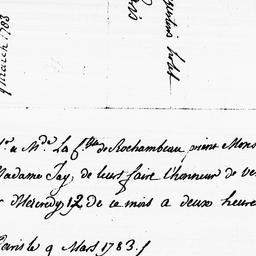 9 March 1783
Paris
M. & Mde. La Ctesse de Rochambeau prient Mons
Madame Jay, de leurs faire l'honneur de ve
Mercredy 12 de ce mois a deux heure
Paris le 9 Mars 1783.